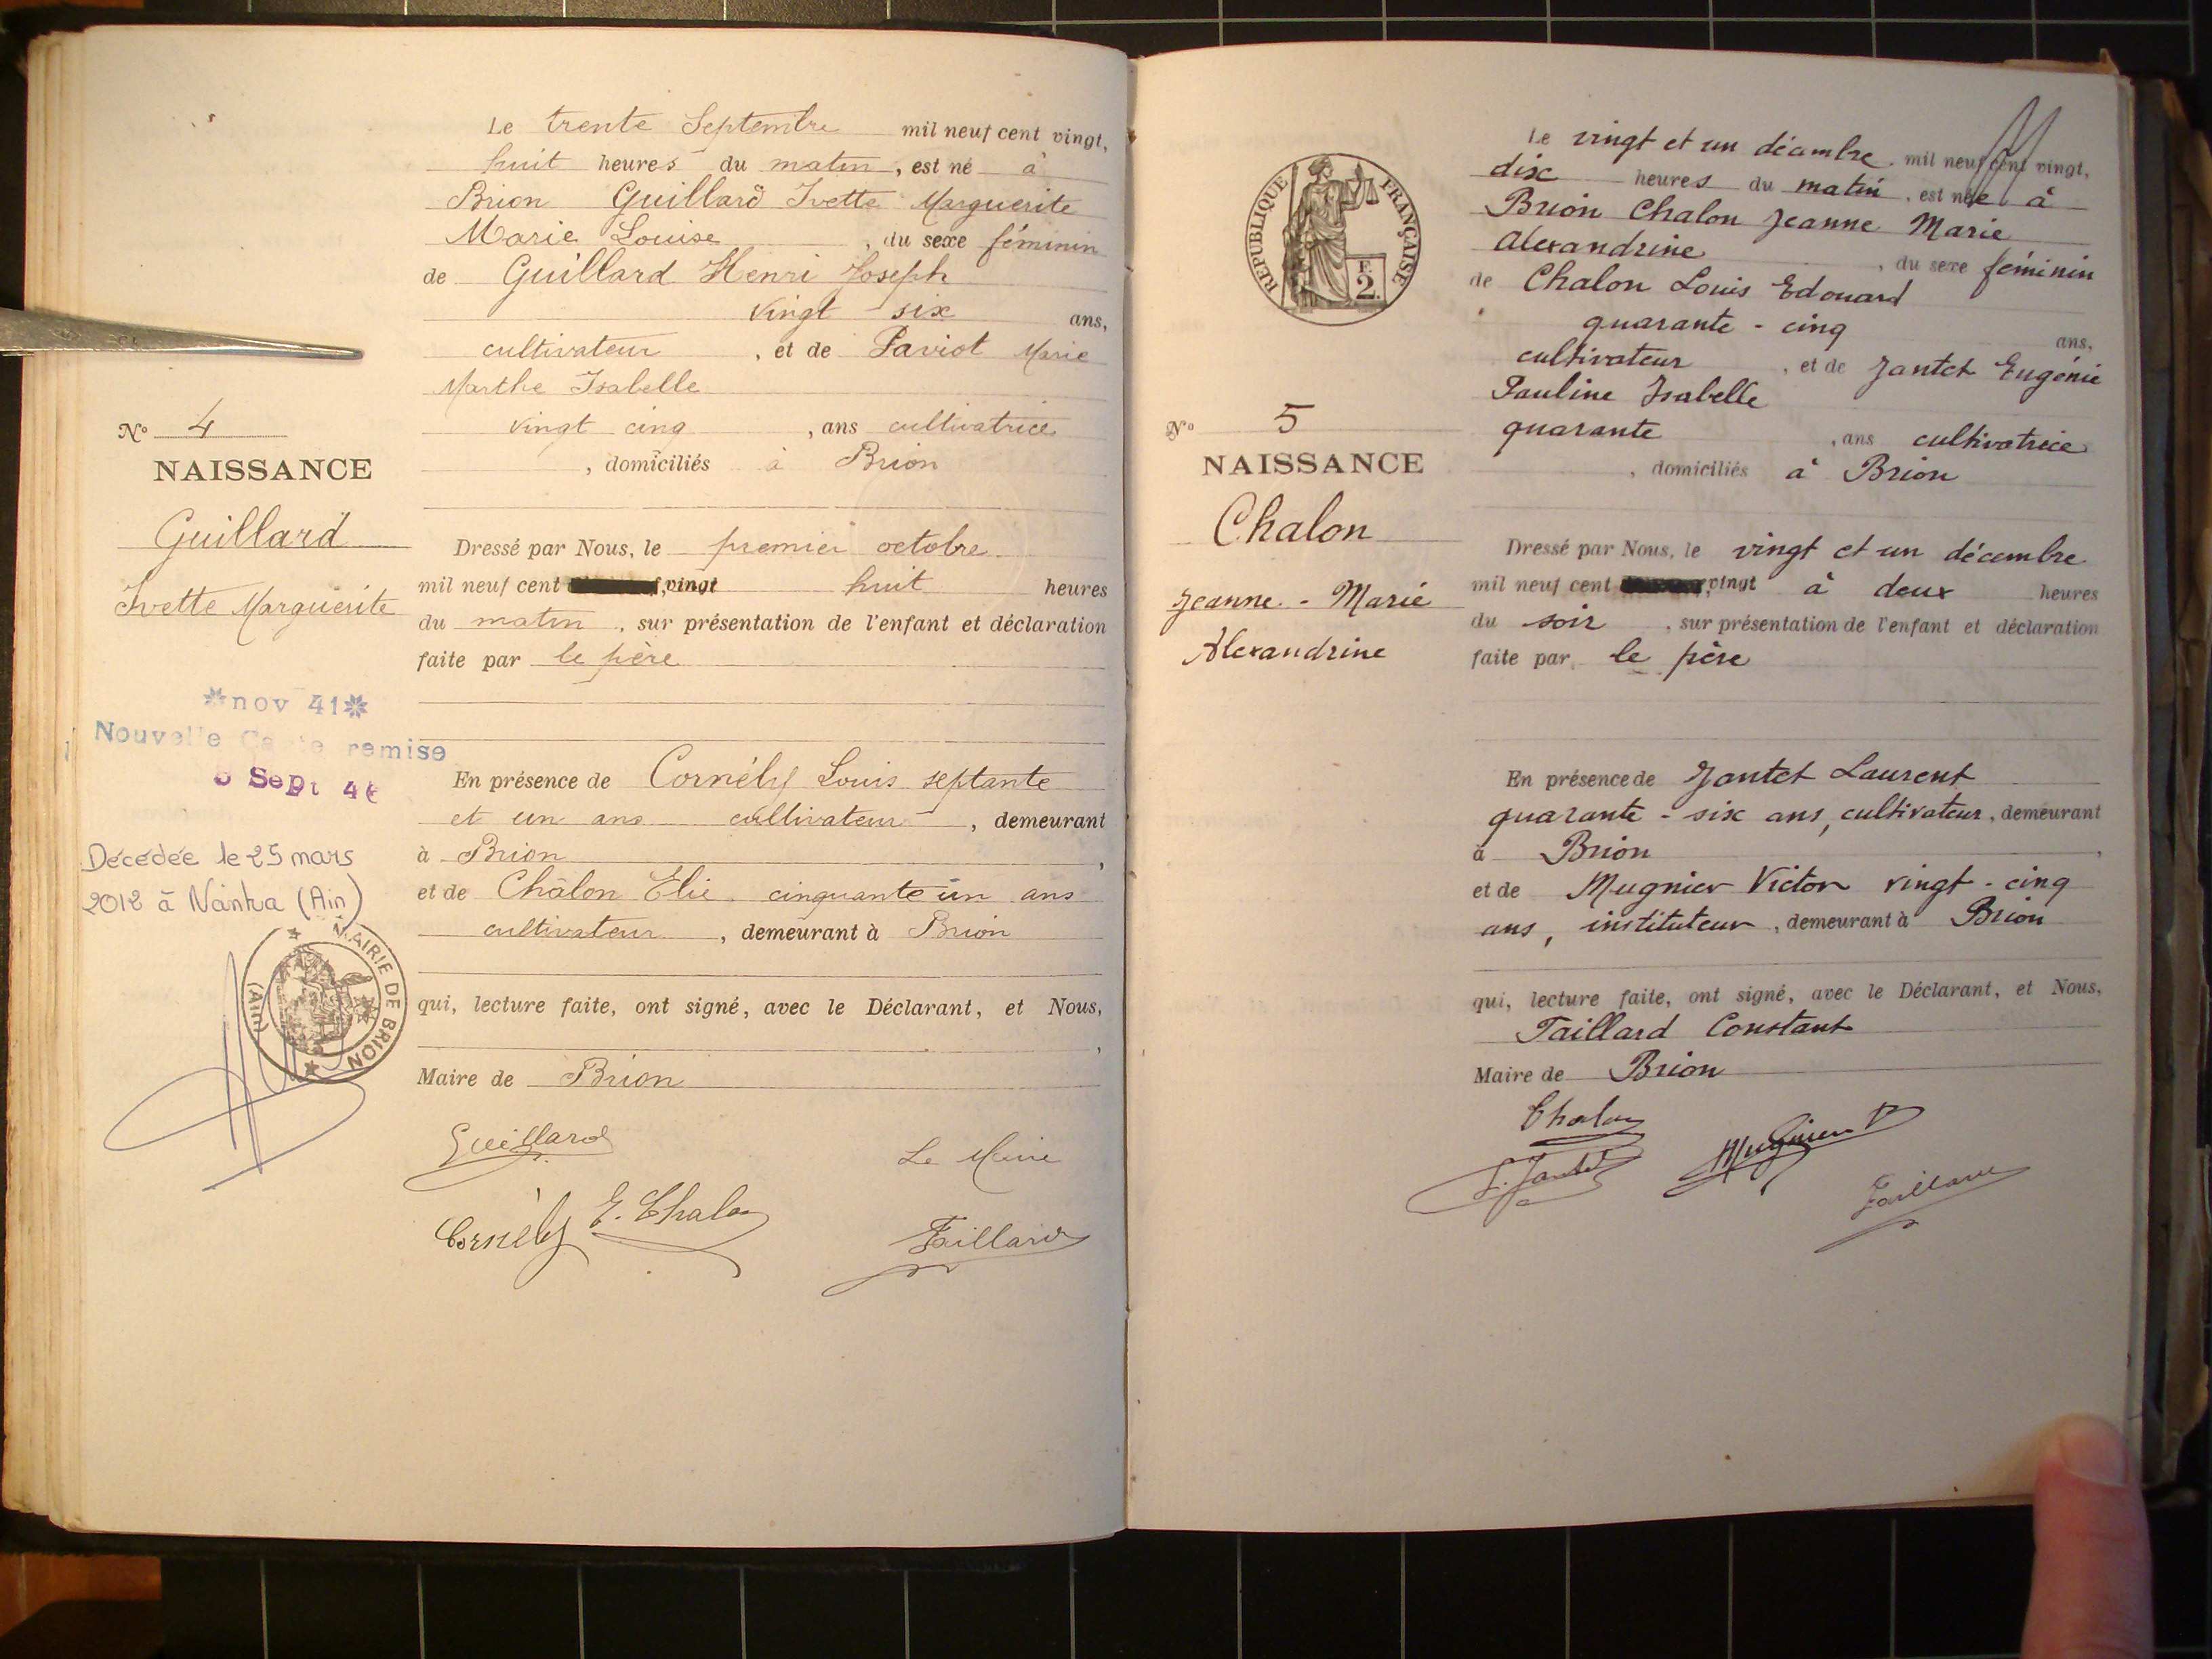 Le trente Septembre mil neuf cent vingt,
huit heures du matin, est né à
Brion Guillard Ivette Marguerite
Marie Louise, du sexe féminin
de Guillard Henri Joseph
vingt six ans,
cultivateur, et de Paviot Marie
Marthe Isabelle
vingt cinq, ans cultivatrice
, domiciliés à Brion
N° 4
NAISSANCE
Guillard
Ivette Marguerite
*nov 41*
Nouvelle Carte remise
Sept 4
Décédée le 25 mars
2012 à Nantua (Ain)
MAIRIE DE BRION
(Ain)
Dressé par Nous, le premier octobre
mil neuf cent vingt huit heures
du matin, sur présentation de l'enfant et déclaration
faite par le père
En présence de Cornély Louis septante
et un ans cultivateur, demeurant
à Brion,
et de Châlon Elie cinquante un ans
cultivateur, demeurant à Brion
qui, lecture faite, ont signé, avec le Déclarant, et Nous,
,
Maire de Brion
Guillard
Le Maire
Cornély E. Chalon
Taillard
REPUBLIQUE FRANÇAISE
F.
2.
Le vingt et un décembre mil neuf cent vingt,
dix heures du matin, est née à
Brion Chalon Jeanne Marie
Alexandrine, du sexe féminin
de Chalon Louis Edouard
quarante - cinq ans,
cultivateur, et de Jantet Eugénie
Pauline Isabelle
quarante, ans cultivatrice
, domiciliés à Brion
N° 5
NAISSANCE
Chalon
Jeanne - Marie
Alexandrine
Dressé par Nous, le vingt et un décembre
mil neuf cent vingt à deux heures
du soir, sur présentation de l'enfant et déclaration
faite par le père
En présence de Jantet Laurent
quarante - six ans, cultivateur, demeurant
à Brion,
et de Mugnier Victor vingt - cinq
ans, instituteur, demeurant à Brion
qui, lecture faite, ont signé, avec le Déclarant, et Nous,
Taillard Constant
Maire de Brion
Chalon
L. Jantet
Mugnier V
Taillard